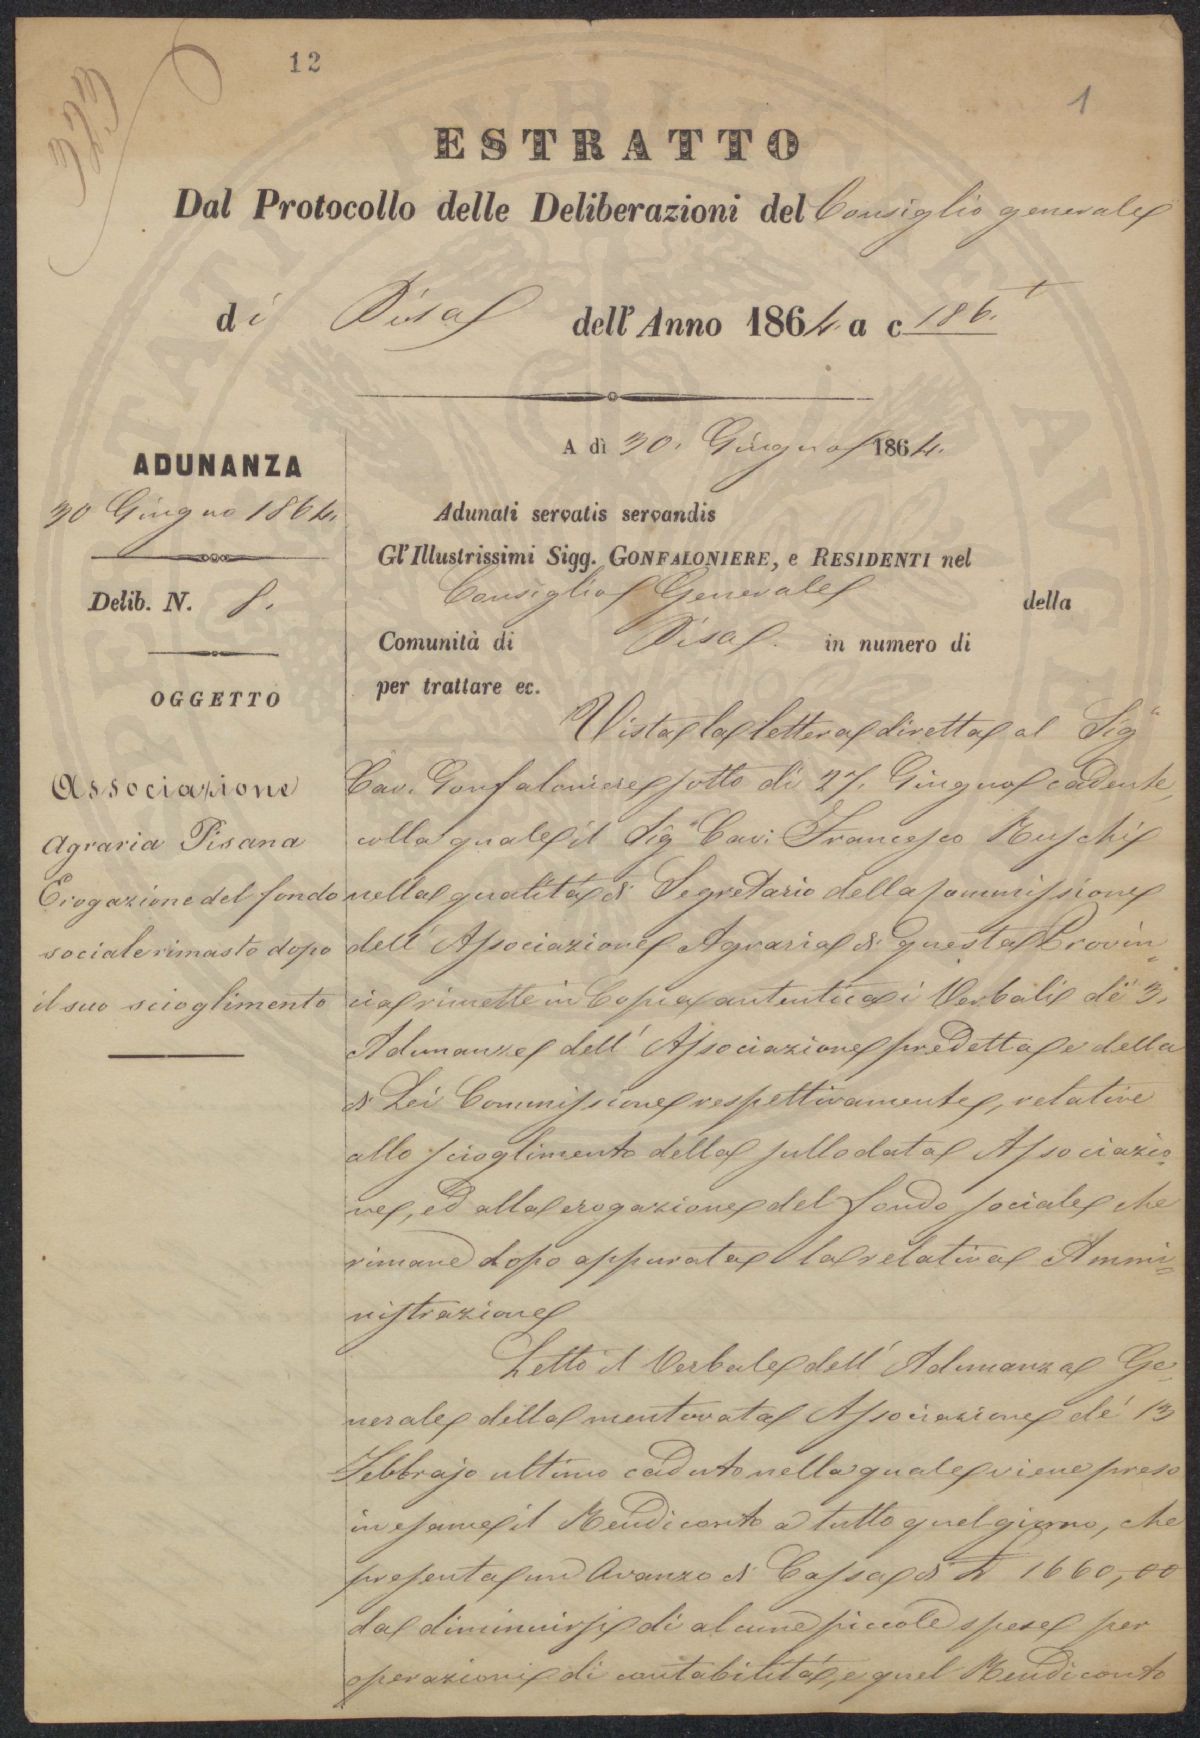 12
1
323
ESTRATTO
Dal Protocollo delle Deliberazioni del Consiglio generale
di Pisa dell' Anno 1864. a c 186.t
ADUNANZA
30 Giugno 1864.
Delib. N. 8.
OGGETTO
Associazione
Agraria Pisana
Erogazione del fondo
sociale rimasto dopo
il suo scioglimento
A dì 30. Giugno 1864.
Adunati servatis servandis
Gl' Illustrissimi Sigg. GONFALONIERE, e RESIDENTI nel
Consiglio Generale della
Comunità di Pisa. in numero di
per trattare ec.
Vista la lettera diretta al Sig.r
Cav. Gonfaloniere sotto dì 27. Giugno cadente,
colla quale il Sig.r Cav: Francesco Ruschi
nella qualità di Segretario della Commissione
dell' Associazione Agraria di questa Provin=
cia rimette in Copia autentica i Verbali de' 3.
Adunanze dell' Associazione predetta e della
di Lei Commissione respettivamente, relative
allo scioglimento della sullodata Associazio=
ne, ed alla erogazione del fondo sociale che
rimane dopo appurata la relativa Ammi=
nistrazione
Letto il Verbale dell' Adunanza Ge=
nerale della mentovata Associazione de' 13
Febbrajo ultimo caduto nella quale viene preso
in esame il Rendiconto a tutto quel giorno, che
presenta un Avanzo di Cassa di £ 1660,00
da diminuirsi di alcune piccole spese per
operazioni di contabilità, e quel Rendiconto